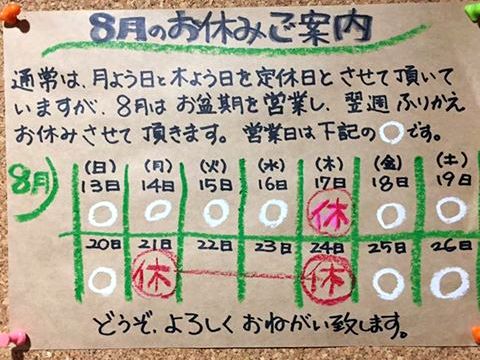 8月のお休みご案内
通常は、月よう日と木よう日を定休日とさせて頂いて
いますが、8月はお盆期を営業し、翌週ふりかえ
お休みさせて頂きます。営業日は下記の○です。
8月
(日) (月) (火) (水) (木) (金) (土)
13日 14日 15日 16日 17日 18日 19日
○ ○ ○ ○ 休 ○ ○
20日 21日 22日 23日 24日 25日 26日
○ 休 休 ○ ○
どうぞ、よろしくおねがい致します。